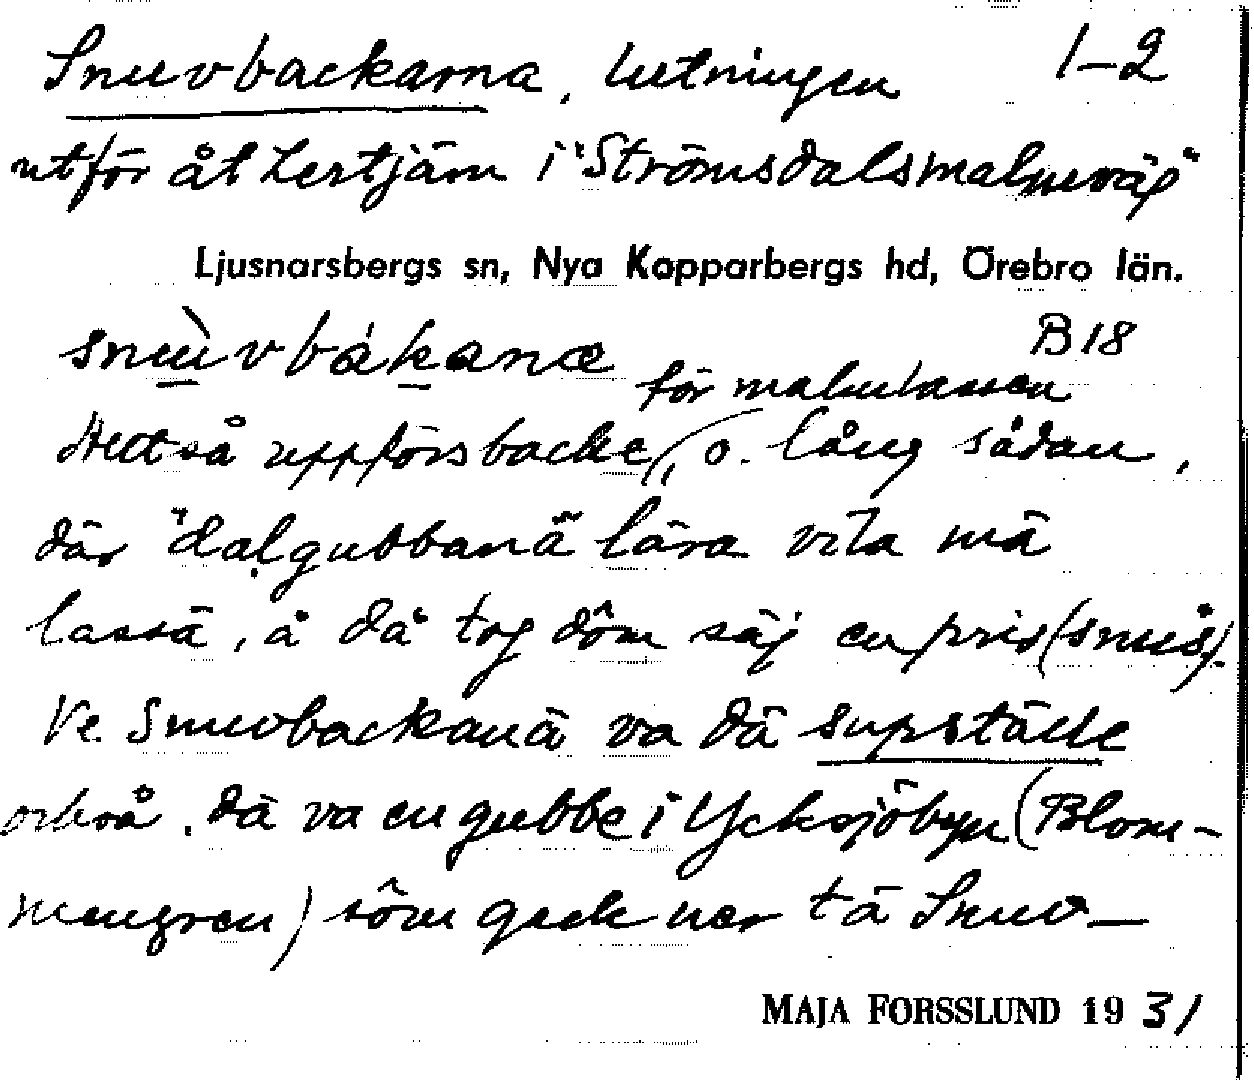 Snuvbackarna, lutningen 1–2
utför åt Lertjärn i "Strömsdalsmalmväg"
Ljusnarsbergs sn, Nya Kopparbergs hd, Örebro län.
snùvbákanæ B 18
för malmlassen
Hettså uppförsbacke, o. lång sådan,
där "dalgubbanä" lära vila mä
lassä, å då tog dôm säj en pris (snus).
Ve Snuvbackanä va dä supställe
också. Dä va en gubbe i Ycksjöbyn (Blom-
mengren) sôm geck ner tä Snuv–
MAJA FORSSLUND 1931